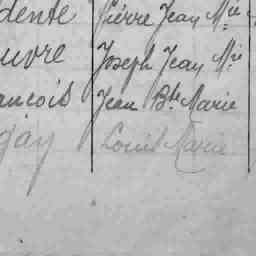 dente Pierre Jean Mie
uvre Joseph Jean Mie
ancois Jean Bte Marie
gay Louis Marie